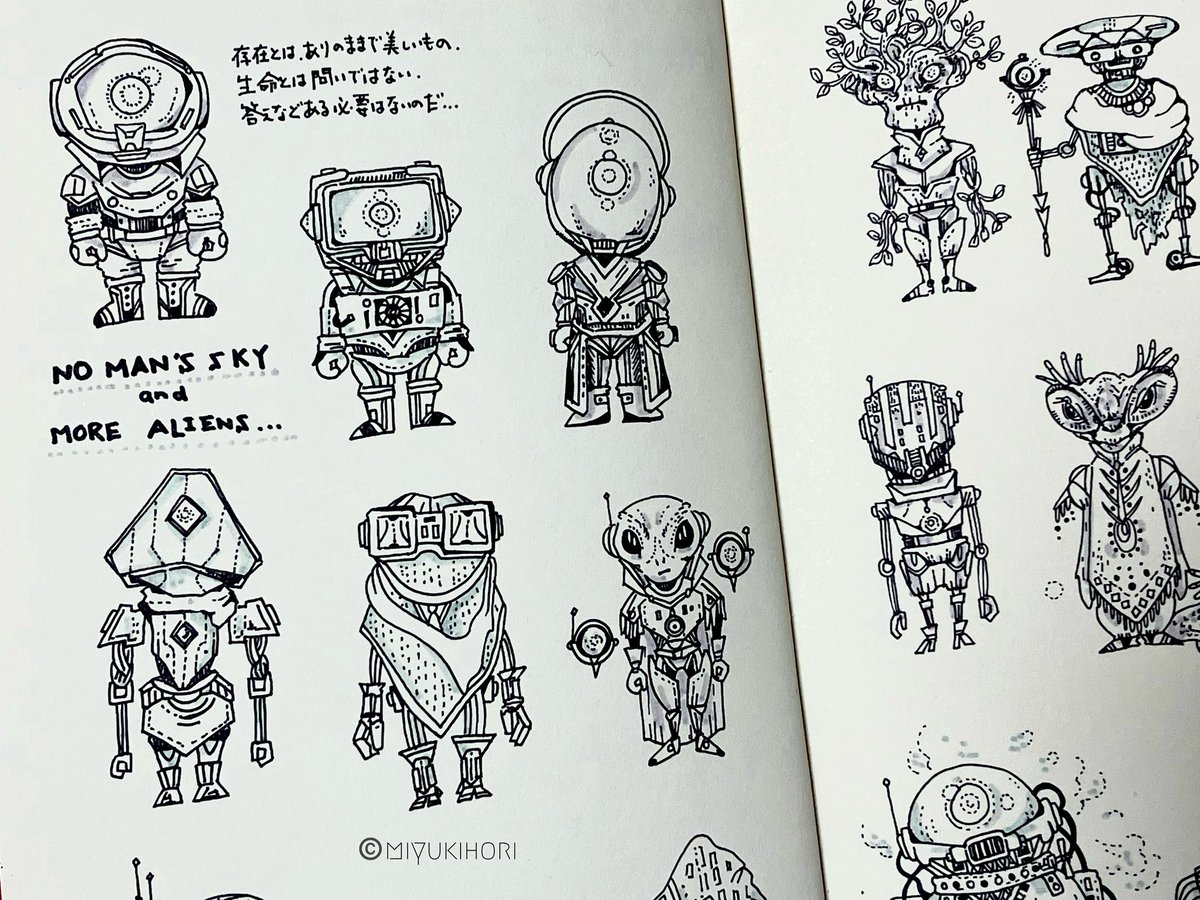 存在とは、ありのままで美しいもの.
生命とは問いではない.
答えなどある必要はないのだ...
NO MAN'S SKY
and
MORE ALIENS...
©MIYUKIHORI